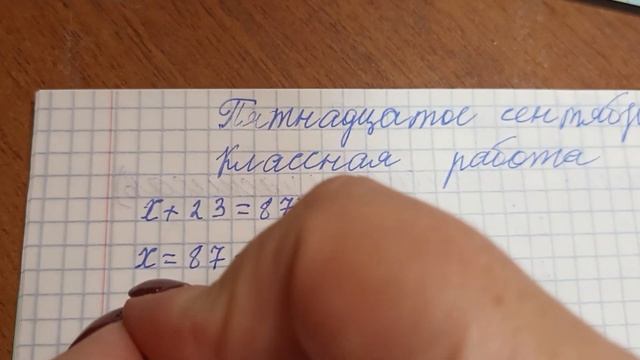 Пятнадцатое сентябр
классная работа
x + 23 = 87
x = 87